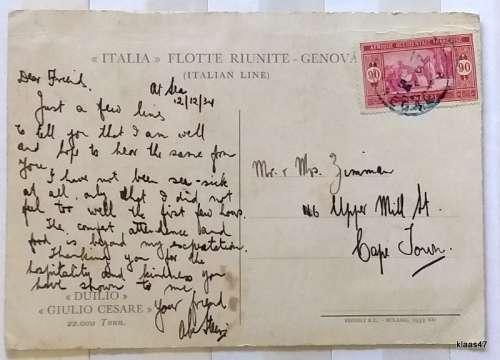 « ITALIA » FLOTTE RIUNITE - GENOVA
(ITALIAN LINE)
Dear Friend,
At Sea
12/12/34
Just a few lines
to tell you that I am well
and hope to hear the same from
you.
I have not been sea-sick
at all, only that I did not
feel to well the first few hours.
The comfort attendance and
food is beyond my expectation.
Thanking you for the
hospitality and kindness you
have shown to me,
your friend
« DUILIO »
« GIULIO CESARE »
22.000 Tonn.
AFRIQUE OCCIDENTALE FRANÇAISE
90 90
Mr. & Mrs. Zimman
46 Upper Mill St.
Cape Town.
klaas47